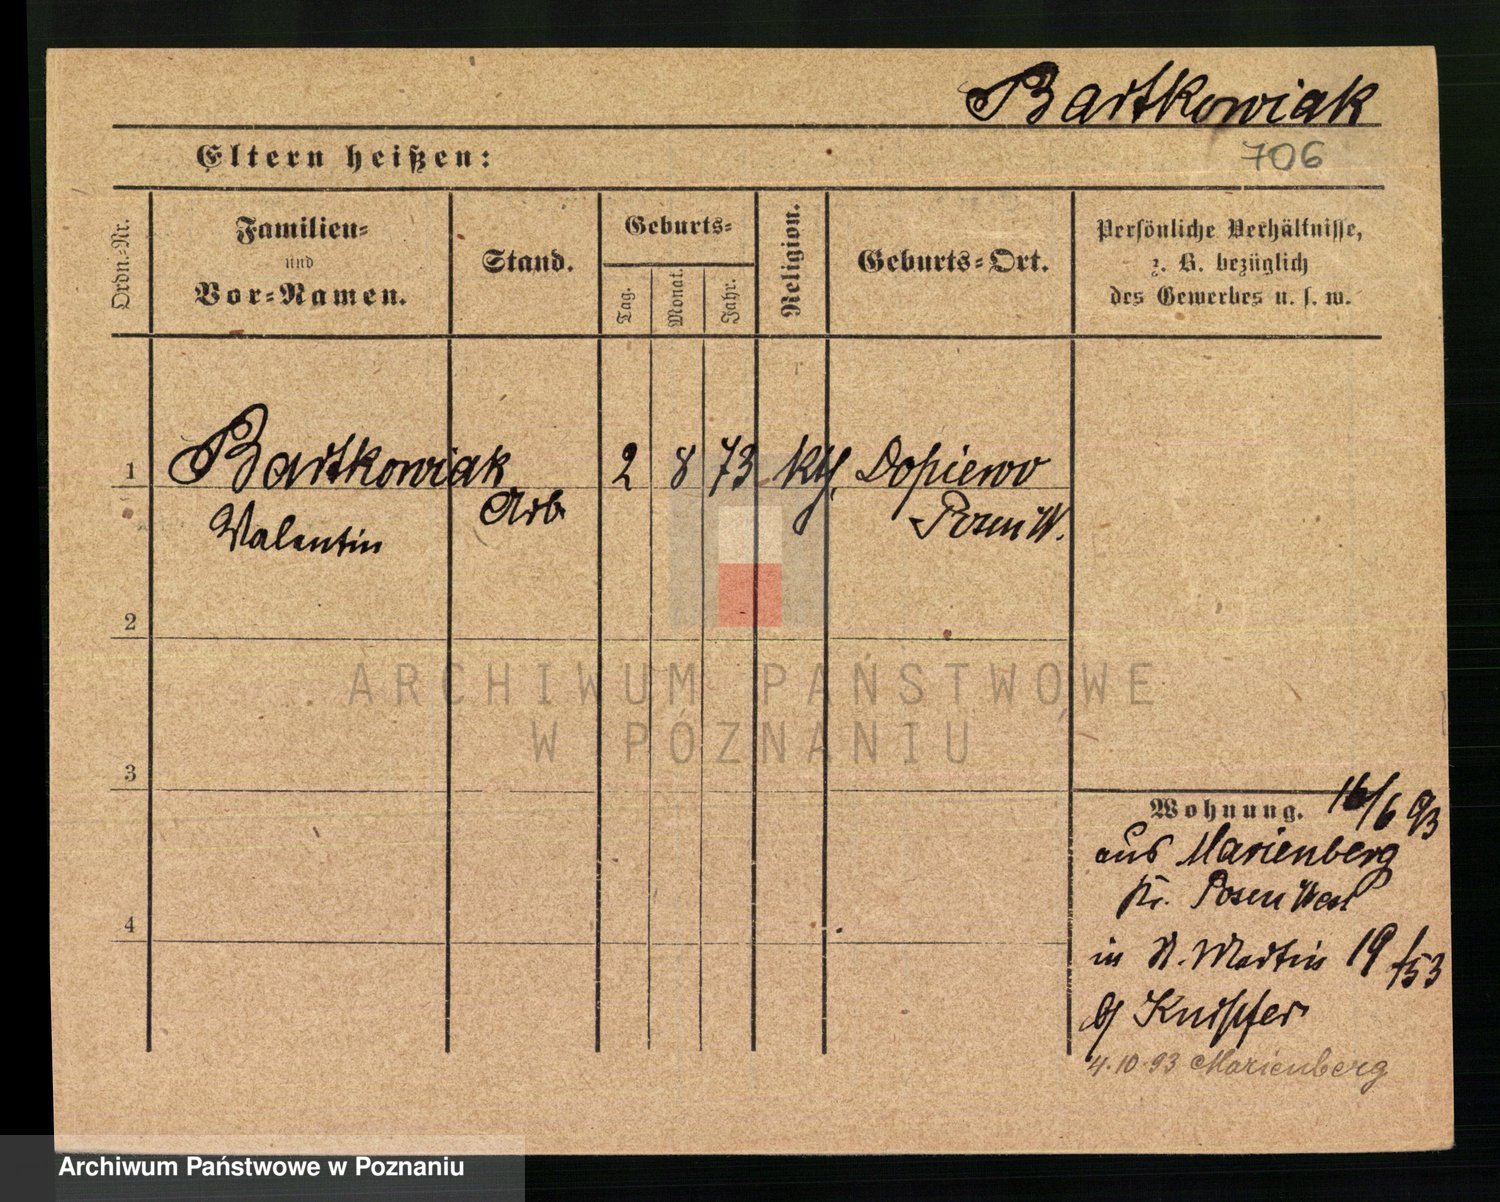 Bartkowiak
706
Eltern heißen:
Ordn.-Nr.
Familien-
und
Vor-Namen.
Stand.
Geburts-
Tag.
Monat.
Jahr.
Religion.
Geburts-Ort.
Persönliche Verhältnisse,
z. B. bezüglich
des Gewerbes u. s. w.
1 Bartkowiak 2 8 73 kth. Dopiewo
Valentin Arb Posen W.
2
3
4
ARCHIWUM PAŃSTWOWE
W POZNANIU
Wohnung. 16/6 93
aus Marienberg
Kr. Posen West
in St. Martin 19
Knispfer
4.10.93 Marienberg
Archiwum Państwowe w Poznaniu